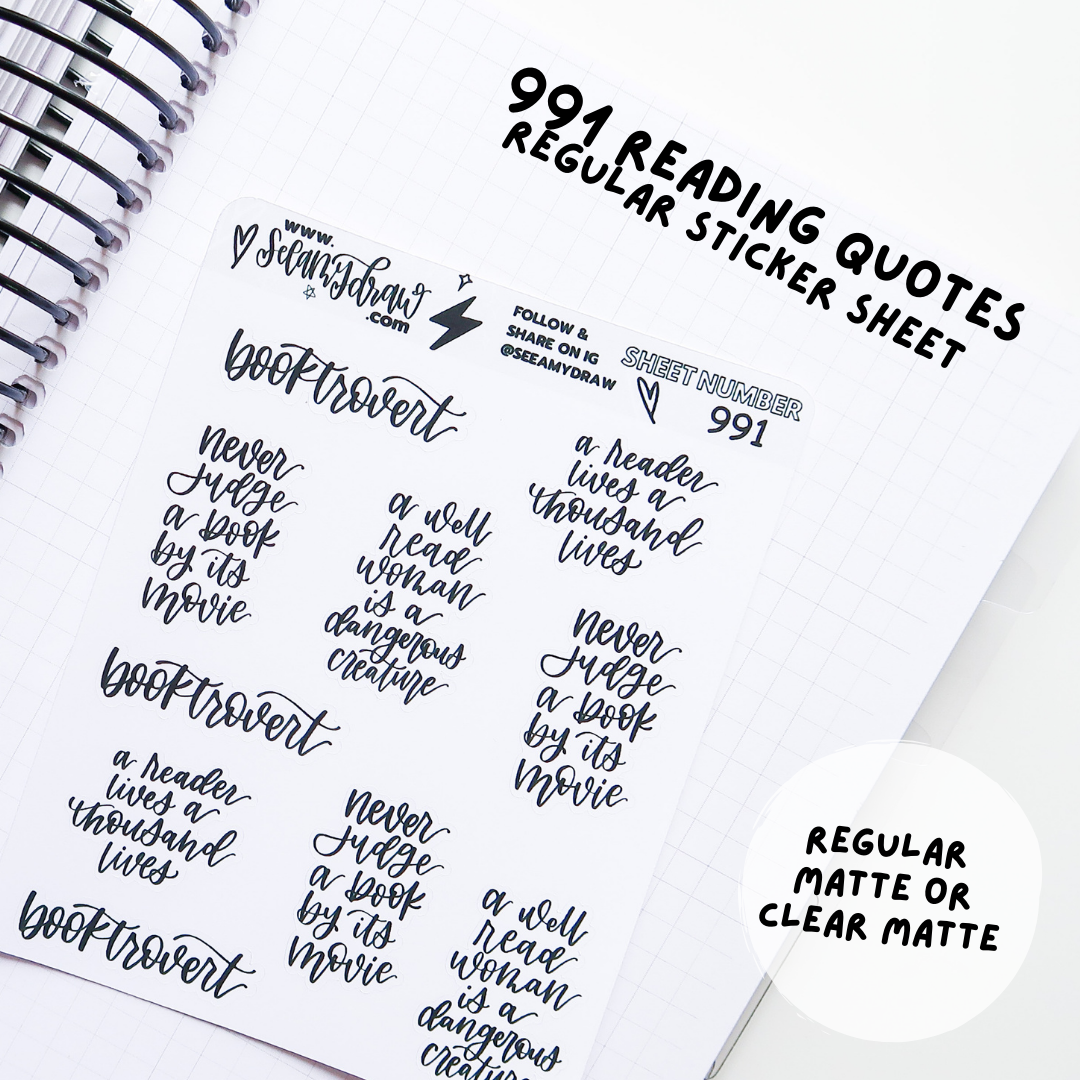 991 READING QUOTES
REGULAR STICKER SHEET
www.
Seeamydraw
.com
FOLLOW &
SHARE ON IG
@SEEAMYDRAW
SHEET NUMBER
991
booktrovert
never
judge
a book
by its
movie
a well
read
woman
is a
dangerous
creature
a reader
lives a
thousand
lives
never
judge
a book
by its
movie
booktrovert
a reader
lives a
thousand
lives
never
judge
a book
by its
movie
a well
read
woman
is a
dangerous
creature
booktrovert
REGULAR
MATTE OR
CLEAR MATTE